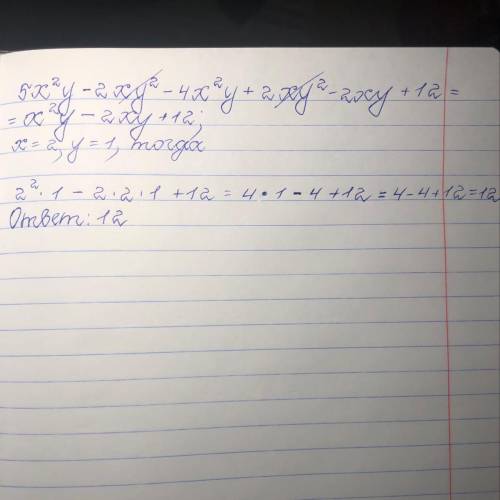 5x²y - 2xy² - 4x²y + 2xy² - 2xy + 12 =
= x²y - 2xy + 12;
x = 2, y = 1, тогда
2² · 1 - 2 · 2 · 1 + 12 = 4 · 1 - 4 + 12 = 4 - 4 + 12 = 12
Ответ: 12